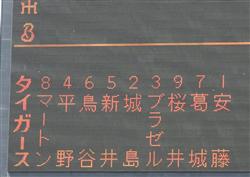 タイガース
8マートン
4平野
6鳥谷
5新井
2城島
3ブラゼル
9桜井
7葛城
1安藤